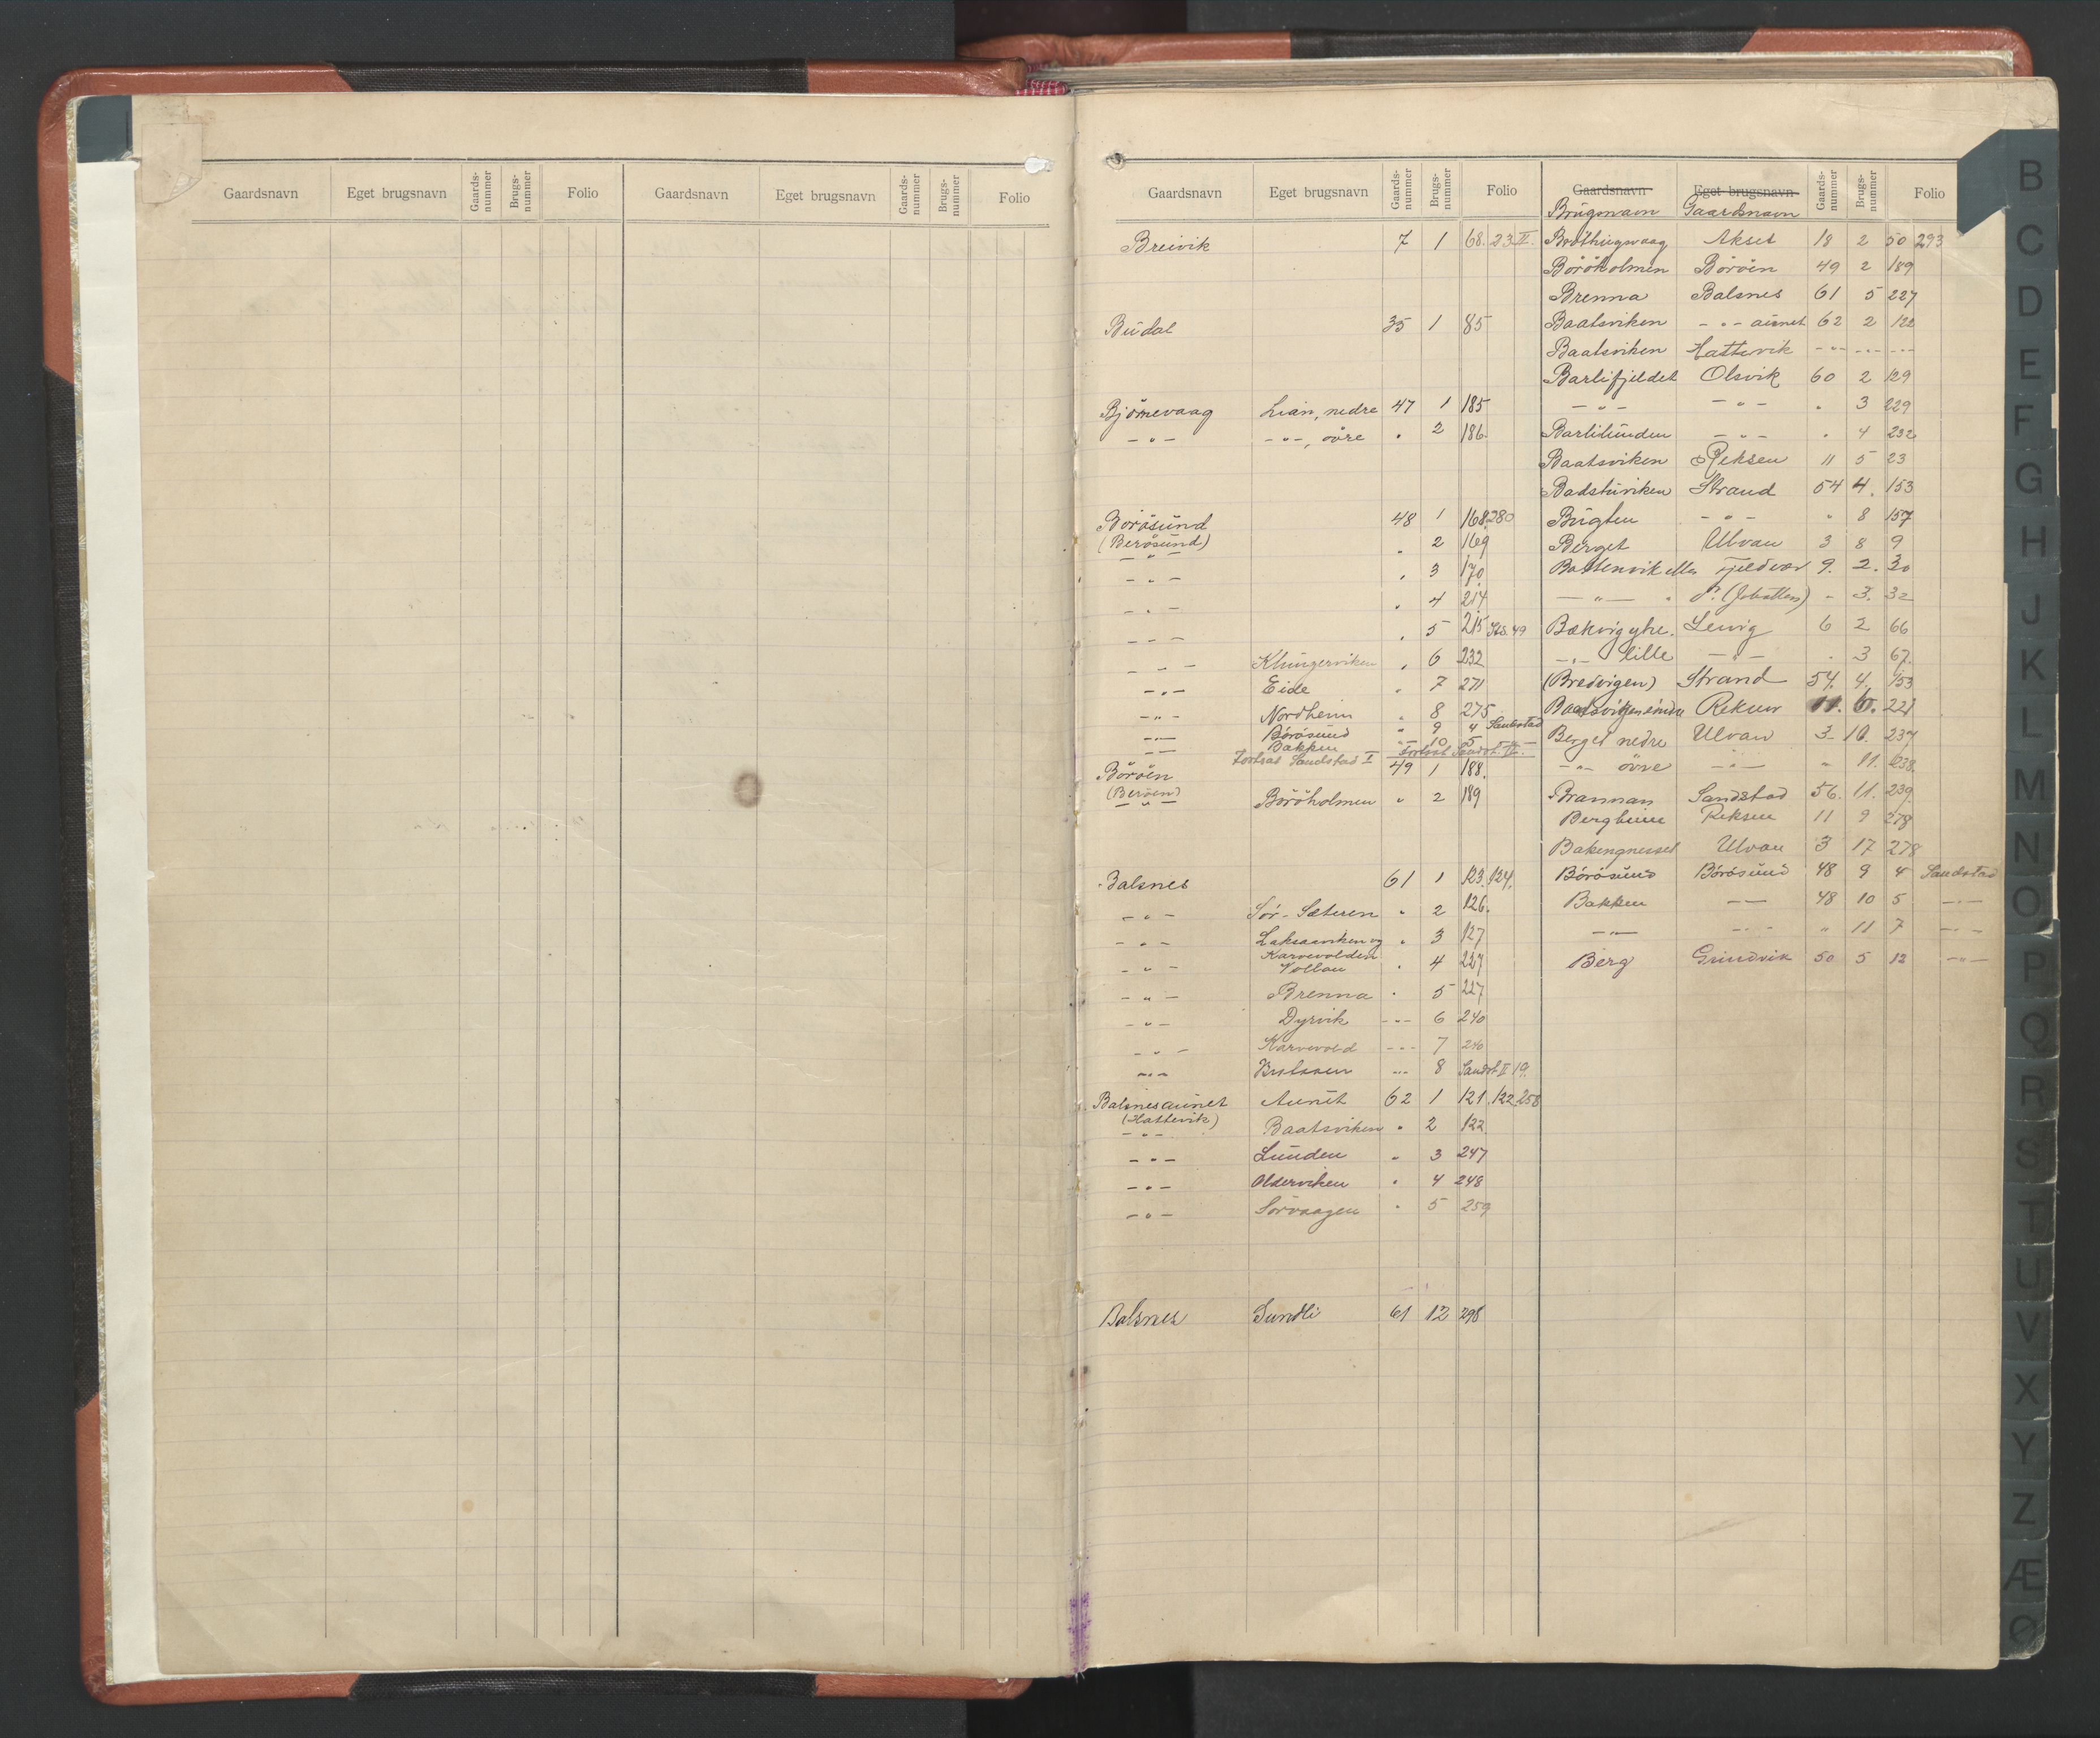 Gaardsnavn Eget brugsnavn Gaards-nummer Brugs-nummer Folio Gaardsnavn Eget brugsnavn Gaards-nummer Brugs-nummer Folio
Gaardsnavn Eget brugsnavn Gaards-nummer Brugs-nummer Folio
Breivik 7 1 68. 23 II.
Budal 35 1 85
Björnevaag Lian, nedre 47 1 185
- " - - " -, övre " 2 186.
Börösund 48 1 168 280
(Berösund)
- " - " 2 169
- " - " 3 170
- " - " 4 214
- " - " 5 215 49
- " - Klungerviken " 6 232
- " - Eide " 7 271
- " - Nordheim " 8 275
- " - Börösund " 9 4 Sandstad
- " - Bakken - " - 10 5 - " -
Fortsat Sandstad I Fortsat Sandst. II.
Böröen 49 1 188.
(Beröen)
- " - Böröholmen " 2 189
Balsnes 61 1 123. 124.
- " - Sør-Sæteren " 2 126.
- " - Laksaaviken og " 3 127
Karvevolden
- " - Vollan " 4 227
- " - Brenna " 5 227
- " - Dyrvik - " - 6 240
- " - Karvevold - " - 7 246
- " - - " - 8 Sandst. II 19.
Balsnesaunet Aunet 62 1 121. 122 258
(Hattevik)
- " - Baatsviken " 2 122
- " - Lunden " 3 247
- " - Olderviken " 4 248
- " - Sørvaagen " 5 259
Balsnes Sundli 61 12 298
Gaardsnavn Eget brugsnavn Gaards-nummer Brugs-nummer Folio
Brugsnavn Gaardsnavn
Akset 18 2 50 293
Böröholmen Böröen 49 2 189
Brenna Balsnes 61 5 227
Baatsviken - " - aunet 62 2 122
Baatsviken Hattevik - " - - " - - " -
Barlifjeldet Olsvik 60 2 129
- " - - " - " 3 229
Barlilunden - " - " 4 232
Baatsviken Reksen 11 5 23
Badstuviken Strand 54 4. 153
Bugten - " - " 8 157
Berget Ulvan 3 8 9
Battenvik eller Fjeldvær 9. 2. 30
- " - " do. - 3. 32
Bækvig ytre. Lervig 6 2 66
- " - lille - " - " 3 67.
(Bredvigen) Strand 54. 4. 153
Baadsvigen indre Reksen 11. 6. 221
Berget nedre Ulvan 3 10. 237
- " - övre - " - " 11. 238.
Brannan Sandstad 56. 11. 239.
Bergheim Reksen 11 9 278
Bakengnesset Ulvan 3 17 278
Börösund Börösund 48 9 4 Sandstad
Bakken - " - 48 10 5 - " -
- " - - " - " 11 7 - " -
Berg Grindvik 50 5 12 - " -
B
C
D
E
F
G
H
J
K
L
M
N
O
P
Q
R
S
T
U
V
X
Y
Z
Æ
Ø